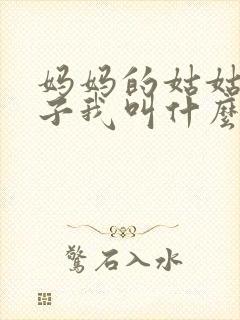 妈妈的姑姑
子我叫什麼
驚石入水